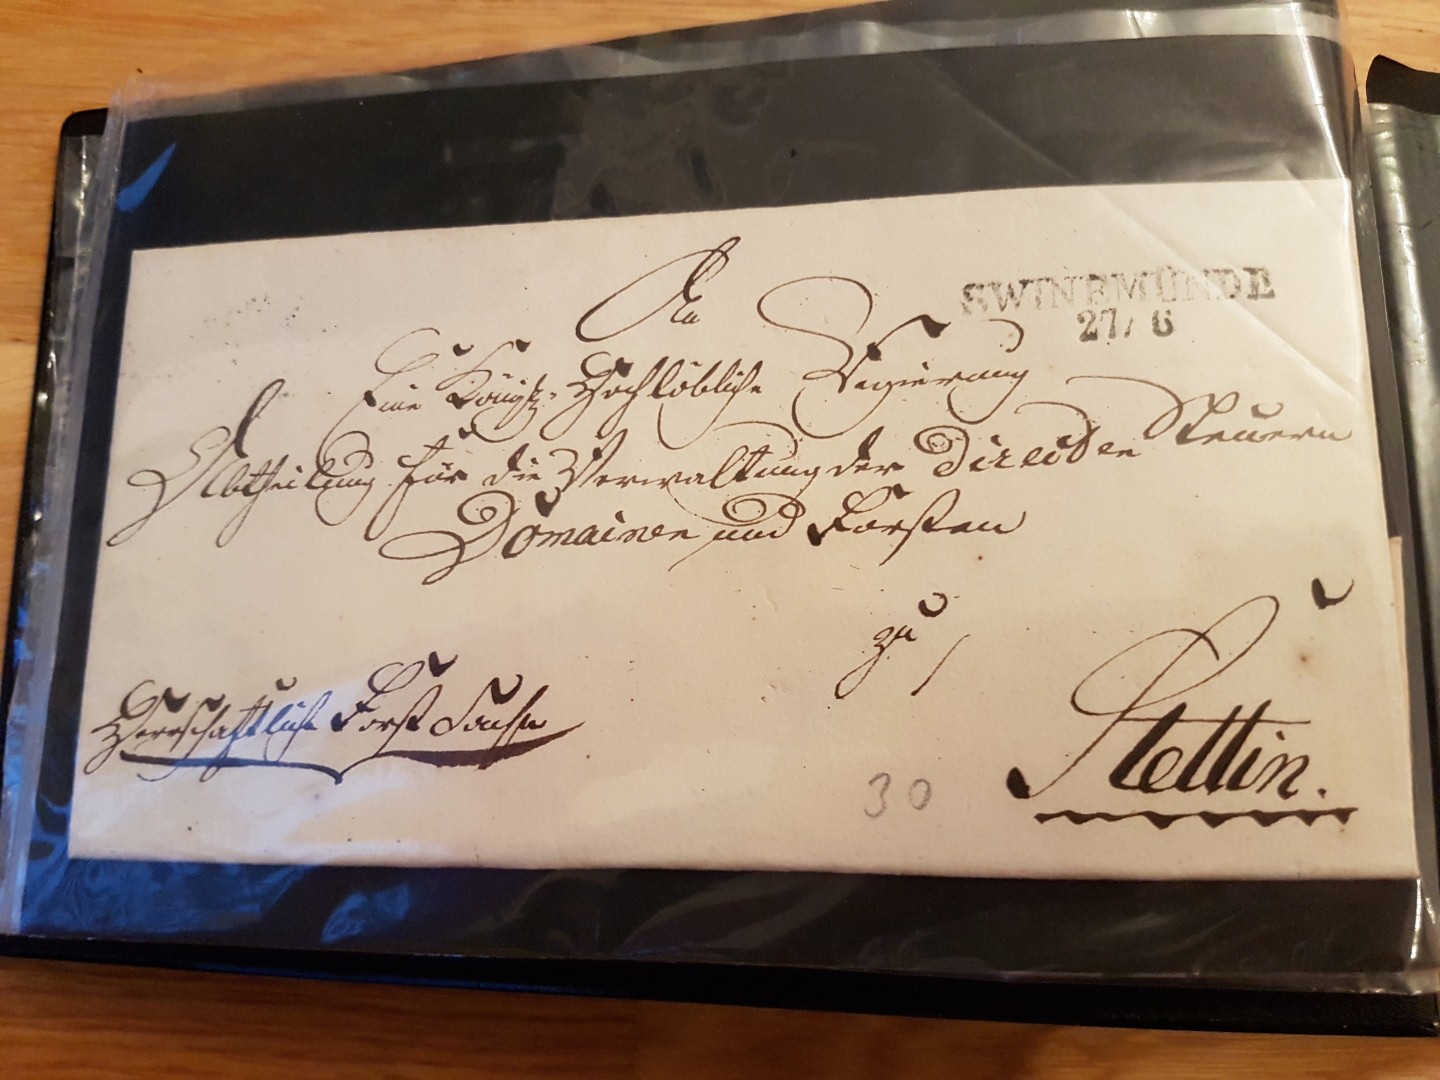 An
SWINEMÜNDE
27/6
Eine Königl. Hochlöbliche Regierung
Abtheilung für die Verwaltung der Directen Steuern
Domainen und Forsten
zu
Herrschaftliche Forst Sache
Stettin.
30